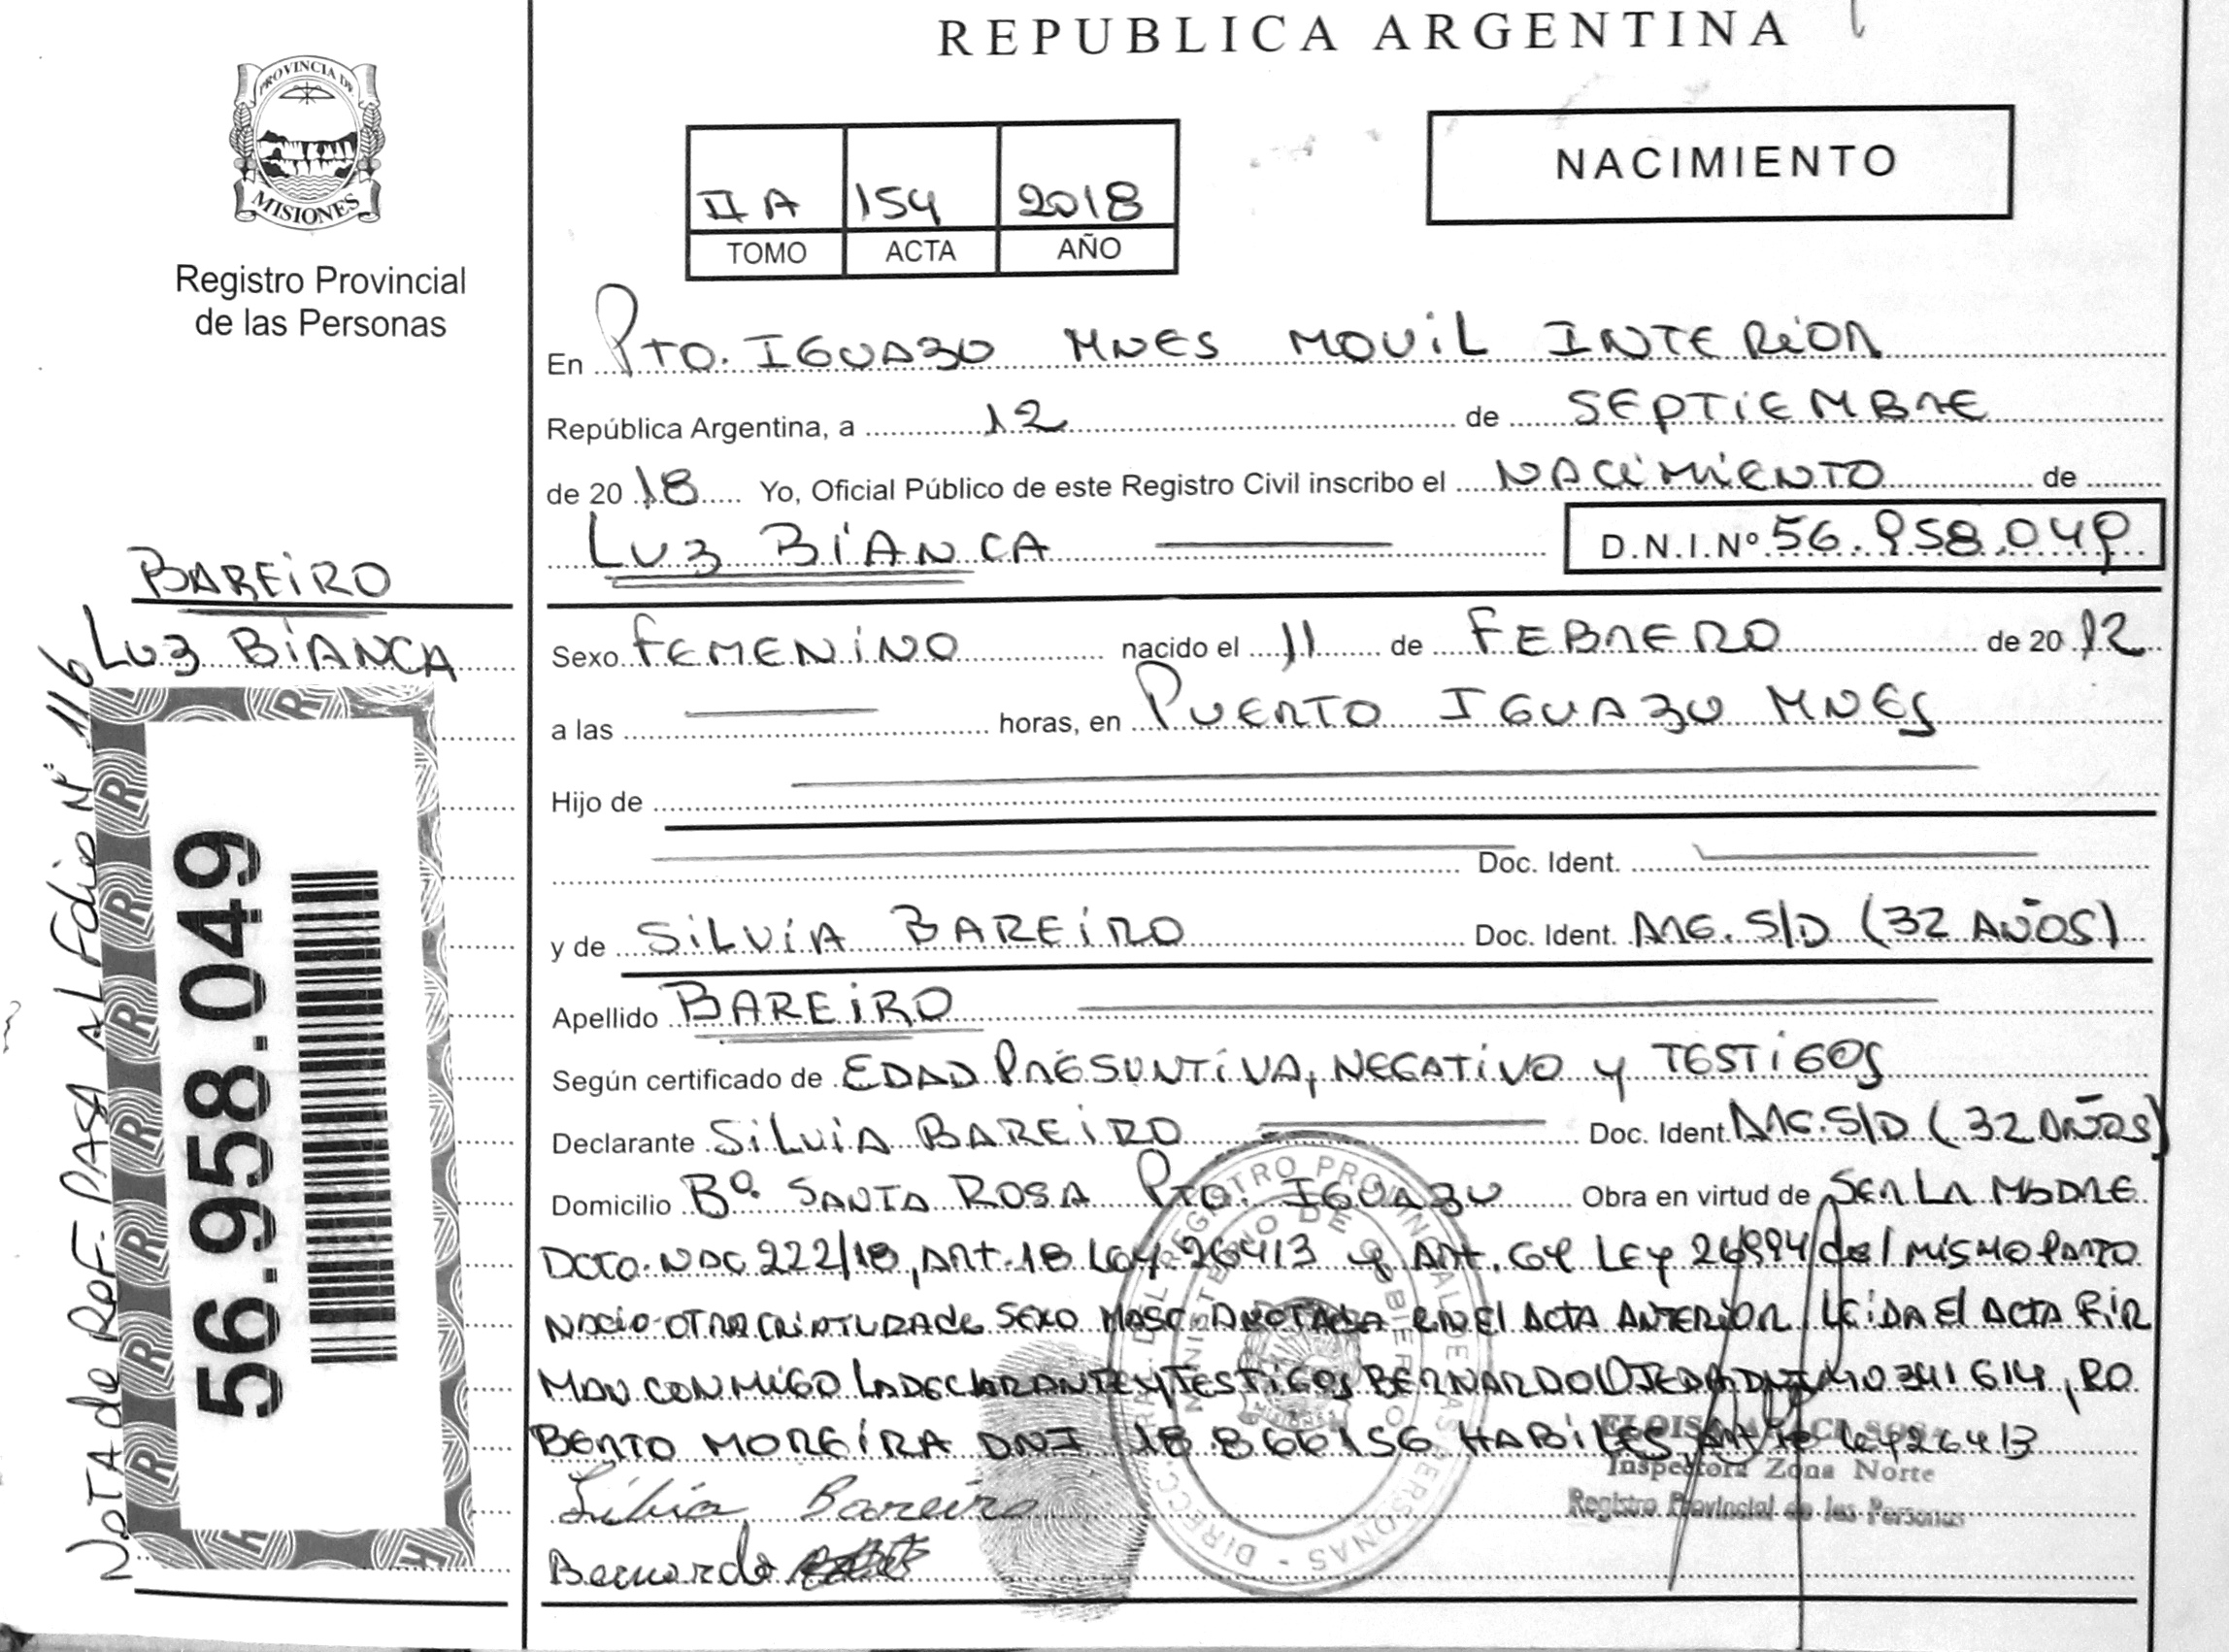 REPUBLICA ARGENTINA
PROVINCIA DE
MISIONES
Registro Provincial
de las Personas
II A 154 2018
TOMO ACTA AÑO
NACIMIENTO
En Pto. IGUAZU MNES MOVIL INTERIOR
República Argentina, a 12 de SEPTIEMBRE
de 2018 Yo, Oficial Público de este Registro Civil inscribo el NACIMIENTO de
LUZ BIANCA D.N.I.Nº 56.958.049
BAREIRO
LUZ BIANCA
Sexo FEMENINO nacido el 11 de FEBRERO de 2012
a las horas, en PUERTO IGUAZU MNES
Hijo de
Doc. Ident.
y de SILVIA BAREIRO Doc. Ident. ARG. S/D (32 AÑOS)
Apellido BAREIRO
Según certificado de EDAD PRESUNTIVA, NEGATIVO y TESTIGOS
Declarante SILVIA BAREIRO Doc. Ident. ARG. S/D (32 AÑOS)
Domicilio Bº SANTA ROSA Pto. IGUAZU Obra en virtud de SER LA MADRE
DCTO. NAC 222/18, ART. 18 Ley 26413 y ART. 64 Ley 26994 del MISMO PARTO
NACIO OTRA CRIATURA de SEXO MASC ANOTADA EN El ACTA ANTERIOR LEIDA El ACTA FIR
MAN CONMIGO LA DECLARANTE y TESTIGOS BERNARDO OJEDA DNI 40341614, RO
BERTO MOREIRA DNI 18.866156 HABILES Ley 26413
Silvia Bareiro
Bernardo
Inspectora Zona Norte
Registro Provincial de las Personas
DIRECC. GRAL. DEL REGISTRO PROVINCIAL DE LAS PERSONAS
MINISTERIO DE GOBIERNO
MISIONES
NOTA de REF. PASA AL Folio Nº 116
56.958.049